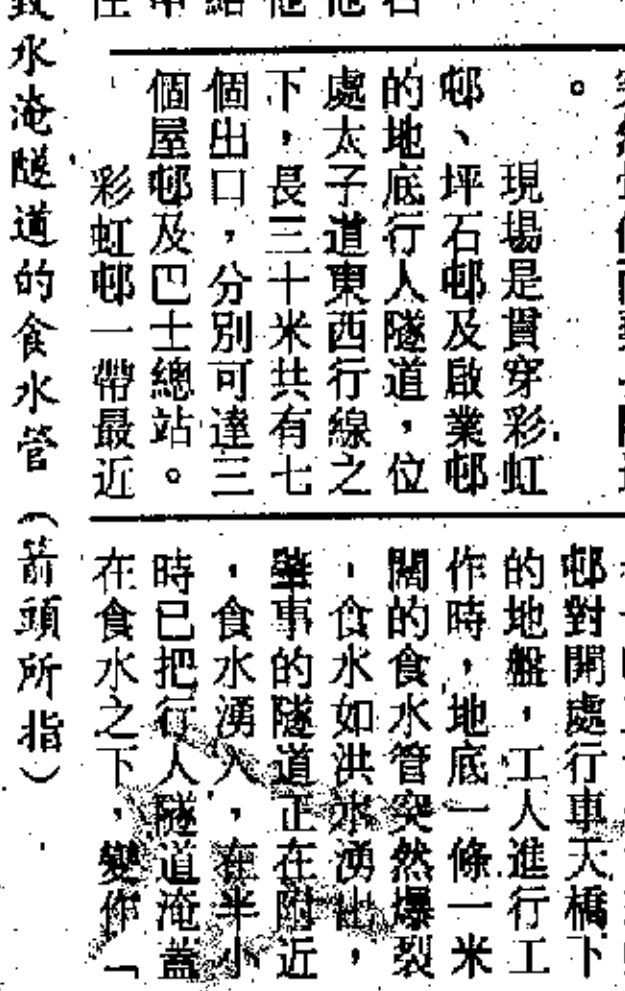 現場是貫穿彩虹
邨、坪石邨及啟業邨
的地底行人隧道，位
處太子道東西行線之
下，長三十米共有七
個出口，分別可達三
個屋邨及巴士總站。
彩虹邨一帶最近
邨對開處行車天橋下
的地盤，工人進行工
作時，地底一條一米
闊的食水管突然爆裂
，食水如洪水湧出，
肇事的隧道正在附近
，食水湧入，在半小
時已把行人隧道淹蓋
在食水之下，變作「
水淹隧道的食水管（箭頭所指）